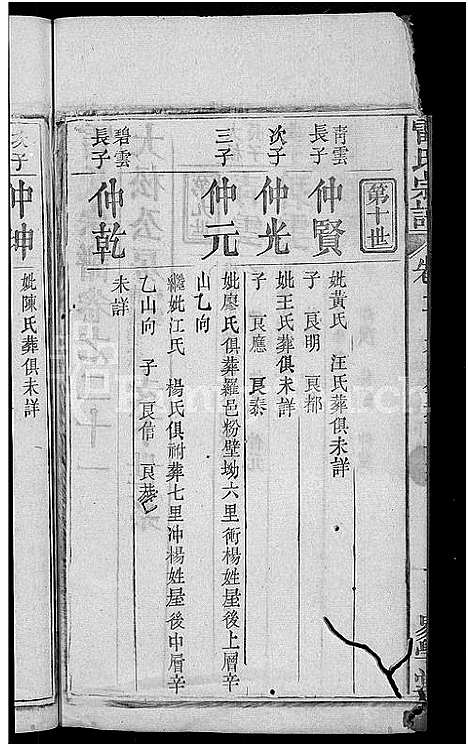 第十世
青雲
長子
仲賢
妣黃氏 汪氏葬俱未詳
子 良明 良都
次子
仲光
妣王氏葬俱未詳
子 良應 良泰
三子
仲元
妣廖氏俱葬羅邑粉壁坳六里術楊姓屋後上層辛
山乙向
繼妣江氏 楊氏俱祔葬七里沖楊姓屋後中層辛
乙山向 子 良信
碧雲
長子
仲乾
未詳
次子
仲坤
妣陳氏葬俱未詳